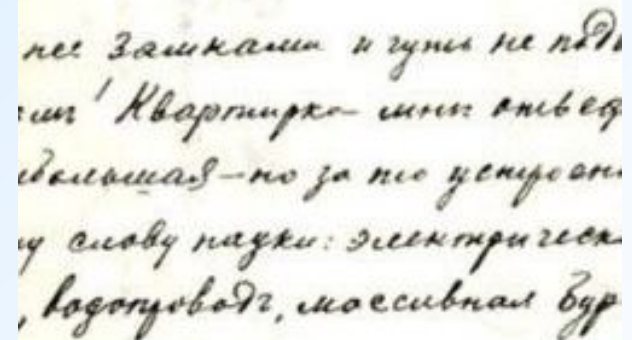 нее замками и чуть не подъ
емъ! Квартирка мнѣ отвед
ебольшая – но за то устроен
у слову науки: электрическ
, водопроводъ, массивная бур